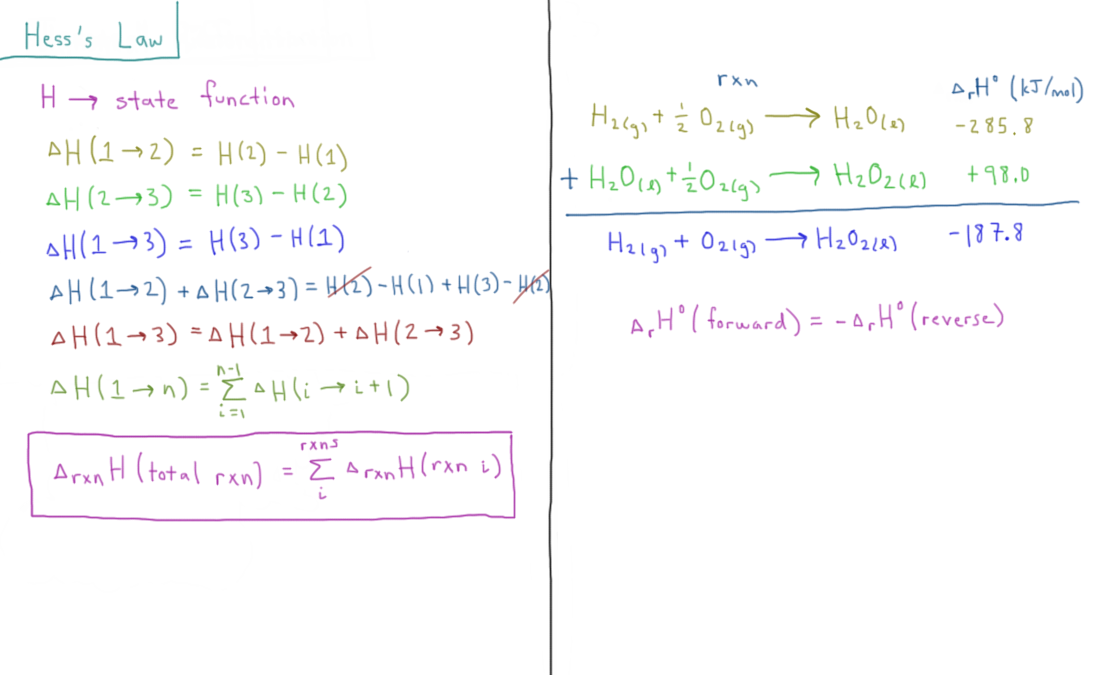 Hess's Law
H → state function
ΔH(1→2) = H(2) - H(1)
ΔH(2→3) = H(3) - H(2)
ΔH(1→3) = H(3) - H(1)
ΔH(1→2) + ΔH(2→3) = H(2) - H(1) + H(3) - H(2)
ΔH(1→3) = ΔH(1→2) + ΔH(2→3)
ΔH(1→n) = Σᵢ₌₁ⁿ⁻¹ ΔH(i→i+1)
Δrxn H (total rxn) = Σ_i^rxns Δrxn H(rxn i)
rxn ΔᵣH° (kJ/mol)
H₂(g) + ½ O₂(g) → H₂O(ℓ) -285.8
+ H₂O(ℓ) + ½ O₂(g) → H₂O₂(ℓ) +98.0
H₂(g) + O₂(g) → H₂O₂(ℓ) -187.8
ΔᵣH°(forward) = -ΔᵣH°(reverse)